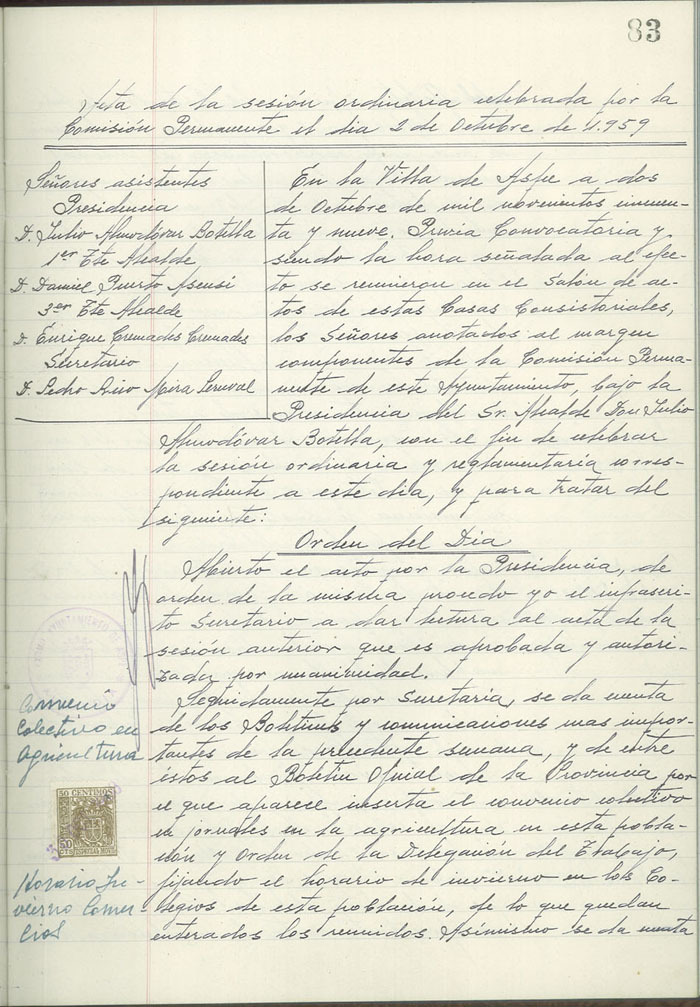 83
Acta de la sesión ordinaria celebrada por la
Comisión Permanente el dia 2 de Octubre de 1.959
Señores asistentes
Presidencia
D. Julio Almodóvar Botella
1er Tte Alcalde
D. Daniel Puerto Asensi
3er Tte Alcalde
D. Enrique Cremades Cremades
Secretario
D. Pedro Mira
En la Villa de Aspe a dos
de Octubre de mil novecientos cincuen-
ta y nueve. Previa Convocatoria y
siendo la hora señalada al efec-
to se reunieron en el Salón de ac-
tos de estas Casas Consistoriales,
los Señores anotados al margen
componentes de la Comisión Perma-
nente de este Ayuntamiento, bajo la
Presidencia del Sr. Alcalde Don Julio
Almodóvar Botella, con el fin de celebrar
la sesión ordinaria y reglamentaria corres-
pondiente a este dia, y para tratar del
siguiente:
Orden del Dia
Abierto el acto por la Presidencia, de
orden de la misma procedo yo el infrascri-
to Secretario a dar lectura al acta de la
sesión anterior que es aprobada y autori-
zada por unanimidad.
Convenio
Colectivo en
Agricultura
Seguidamente por Secretaria, se da cuenta
de los Boletines y comunicaciones mas impor-
tantes de la precedente semana, y de entre
estos al Boletin Oficial de la Provincia por
el que aparece inserta el convenio colectivo
en jornales en la agricultura en esta pobla-
ción y Orden de la Delegación del Trabajo,
fijando el horario de invierno en los Co-
legios de esta población, de lo que quedan
enterados los reunidos. Asimismo se da cuenta
50 CENTIMOS
50
CTS
ESPECIAL MOVIL
Horario In-
vierno Comer-
cial